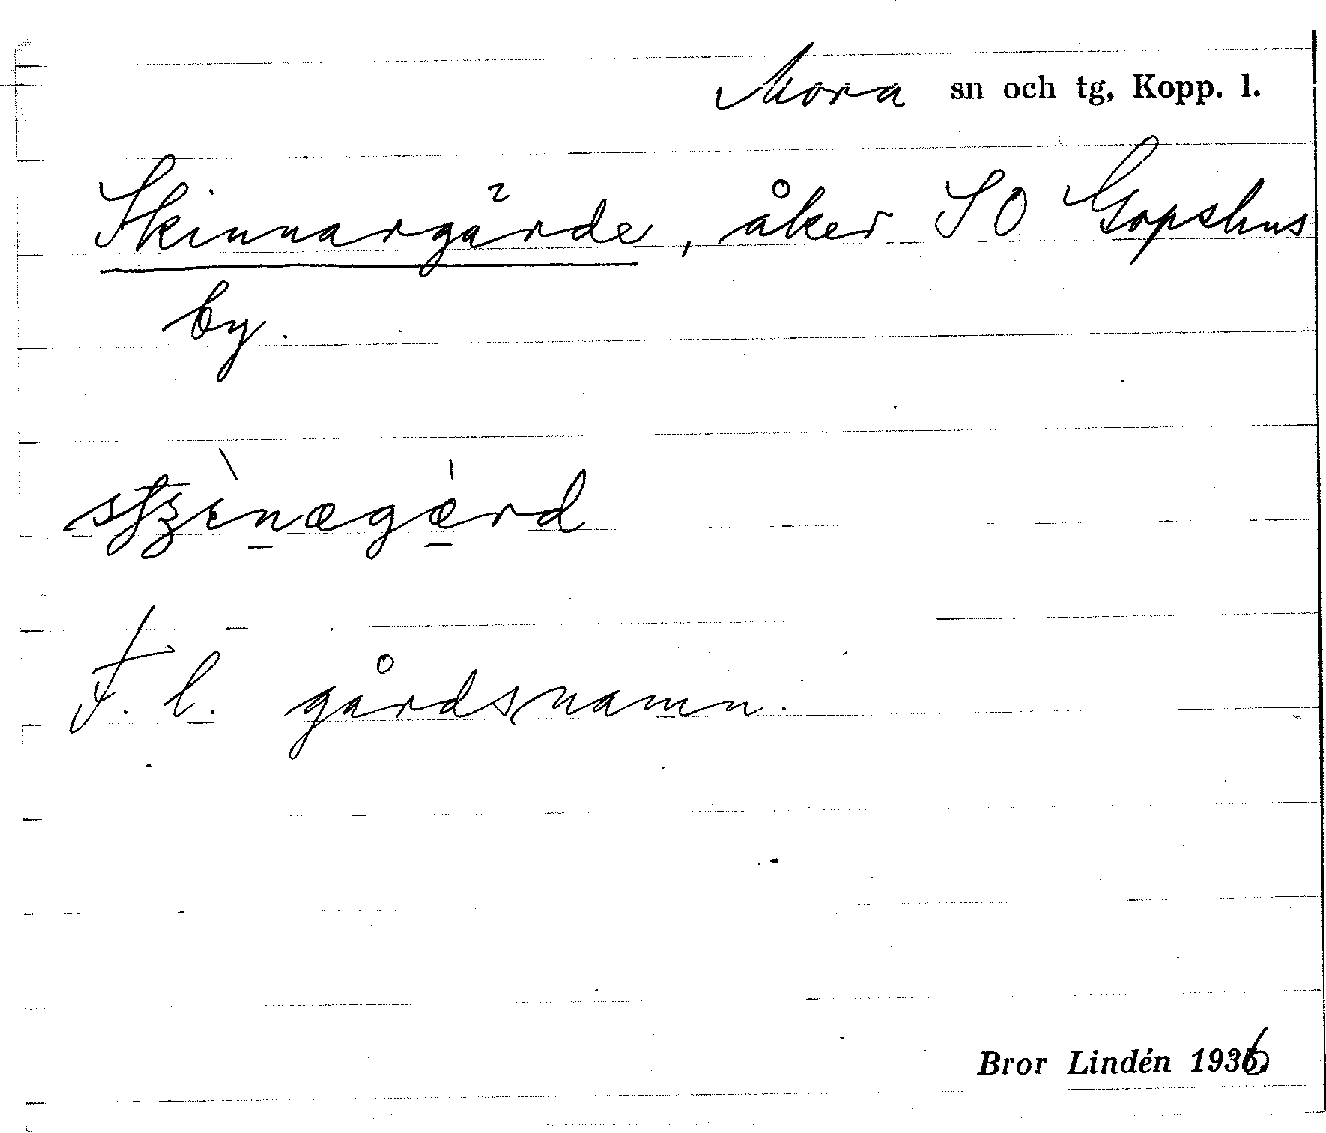 Mora sn och tg, Kopp. l.
Skinnargärde, åker SO Gopshus
by.
F. l. gårdsnamn.
Bror Lindén 1936